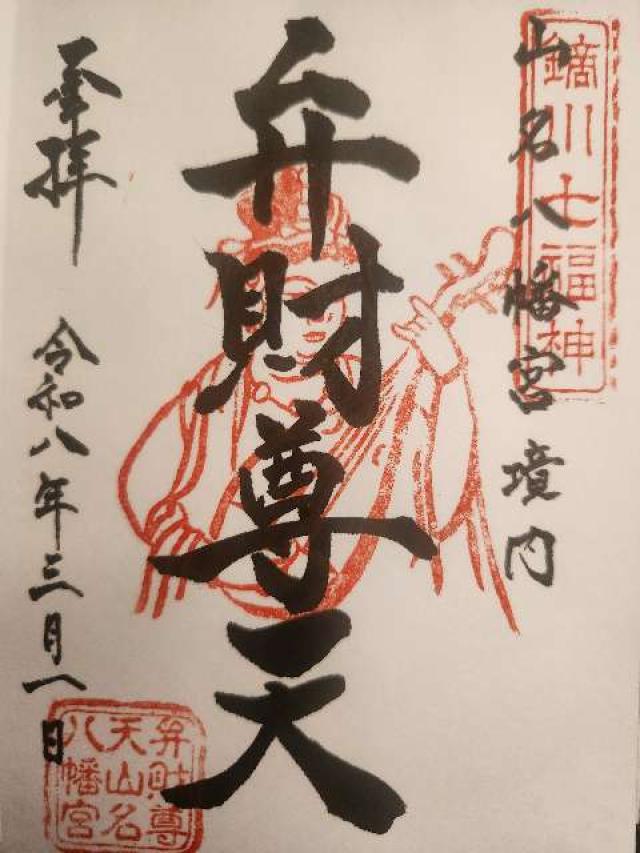 鏑川七福神
山名八幡宮境内
弁財尊天
奉拝
令和八年三月一日
弁財尊
天山名
八幡宮